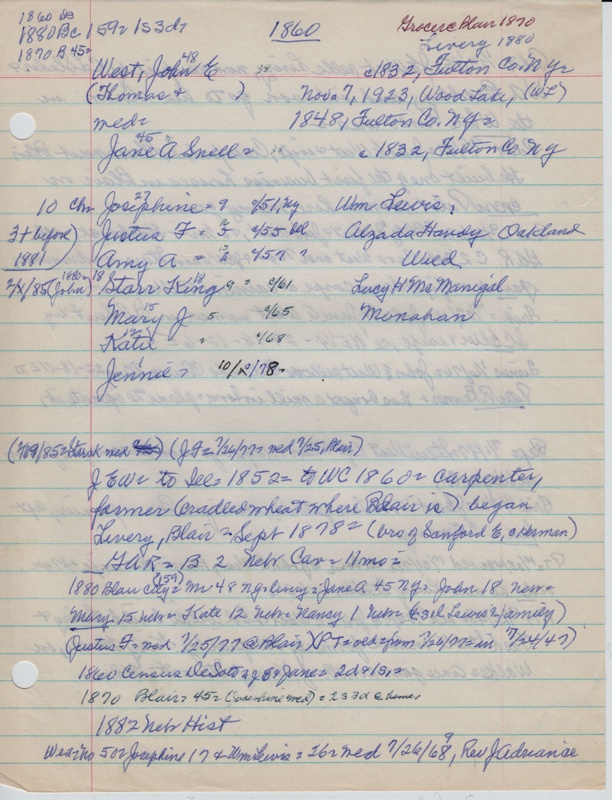 1860 Ds
1880 Bc 159= 1s3d=
1870 B 45=
1860
Grocer @ Blair 1870
Livery 1880
West, John E 48 c1832, Fulton Co. Ny
(Thomas + ) Nov 7, 1923, Wood Lake, (WL)
med= 1848, Fulton Co. Ny=
Jane A Snell= 45 c1832, Fulton Co. Ny
10 chn Josephine= 27 9 c/51, Ny Wm Lewis,
3 + before 1881 Justus F= c/55 Alzada Handy Oakland
Amy A= c/57 " Weed
2/ /85 (John) 1880= 18 Starr King 18 9 " c/61 Lucy H McManigal
Mary J 15 5 c/65 Monahan
Katie 12 = " c/68
Jennie= 1 10/2/78=
( /85= Starr med ) (J F= 7/26/77= med 7/25, Blair)
J E W= to Ill= 1852= to WC 1860= carpenter,
farmer (cradled wheat where Blair is) began
Livery, Blair= Sept 1878= (bro of Sanford E, c Herman)
GAR= B 2 Nebr Cav= 11 mo=
1880 Blair City= (159) Mr 48 Ny= livery= Jane A 45 Ny= John 18 Nebr=
Mary 15 Nebr= Kate 12 Nebr= Nancy 1 Nebr (+ Lewis' family)
(Justus F= med 7/25/77 @ Blair) (PT= 7/26/77= in 7/24/47)
1860 Census DeSoto= J E + Jane= 2d+1s,=
1870 Blair= 45= (Josephine med)= 2s3d @ home,
1882 Nebr Hist
Wed= No 50= Josephine 17 + Wm Lewis= 26= med 7/26/68 9, Rev J Adriance